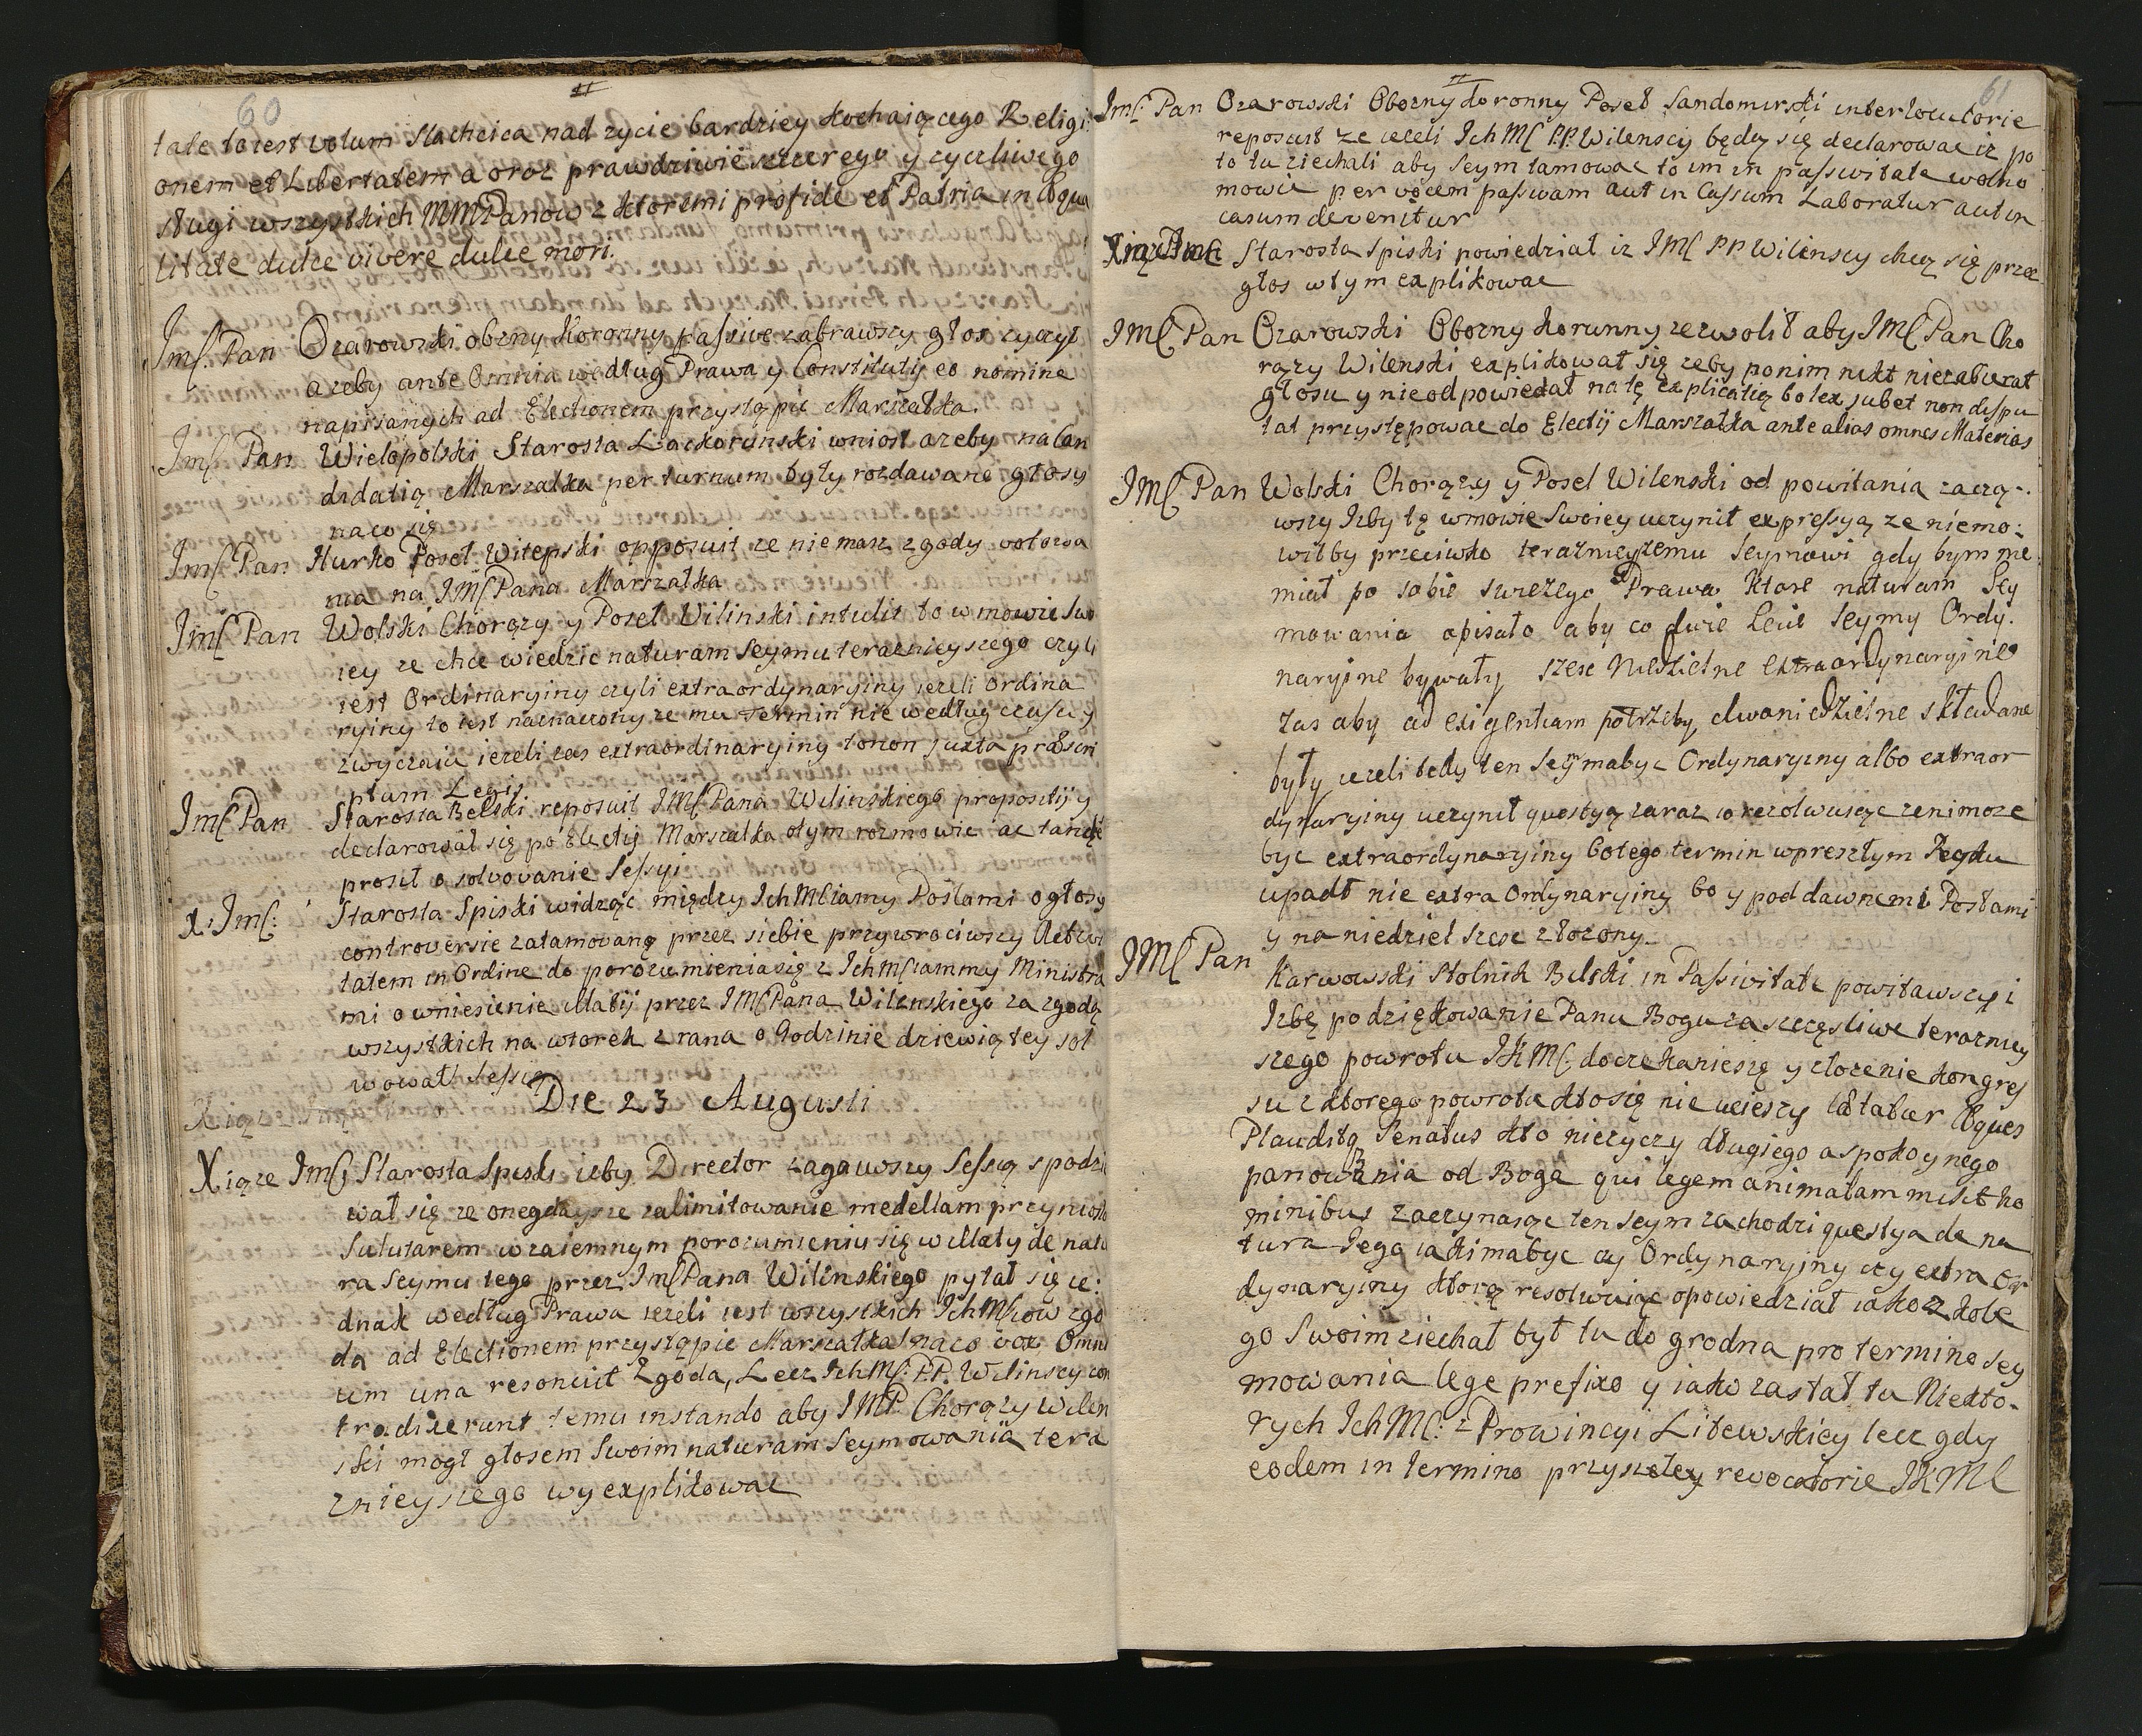 60
tate to iest votum Slachcica nad zycie bardziey kochaiącego Religi
onem et Libertatem a oraz prawdziwie szczerego y zyczliwego
sługi wszystkich MM Panow z ktoremi pro fide et Patria in Equa
litate dulce vivere dulce mori.
Jmć Pan Ozarowski obozny Koronny passive zabrawszy głos zyczył
azeby ante Omnia według Prawa y Constitutij eo nomine
napisanych ad Electionem przystąpić Marszałka.
Jmć Pan Wielopolski Starosta Lackorunski wniosł azeby na Can
didatią Marszałka per turnum były rozdawane głosy
na co się
Jmć Pan Hurko Poseł Witepski opposuit ze nie masz zgody votowa
nia na JMć Pana Marszałka
Jmć Pan Wolski Chorązy y Poseł Wilinski intulit to w mowie swo
iey ze chce wiedzic naturam Seymu teraznieyszego czyli
iest Ordinaryiny czyli extraordynaryiny iezeli Ordina
ryiny to iest naznaczony ze mu Termin nie według czasu y
zwyczaiu iezeli zas extraordinaryiny to non juxta præscri
ptum Legis
Jmć Pan Starosta Bełski reposuit JMć Pana Wilinskiego propositij y
declarował się po Electij Marszałka o tym rozmowic ac tande
prosił o solvovanie Sessyi
X. Jmć: Starosta Spiski widząc między Ich Mciamy Posłami o głosy
controversie zatamovaną przez siebie przywrociwszy Activi
tatem in Ordine do porozumienia się z Ich Mciammy Ministra
mi o wniesienie Matij przez JMć Pana Wilenskiego za zgodą
wszystkich na wtorek z rana o Godzinie dziewiątey sol
wował Sessią
Die 23 Augusti
Xiąze Jmć Starosta Spiski izby Director zagaiwszy Sessią spodzie
wał się ze onegdaysze zalimitowanie medellam przyniosło
Salutarem w zaiemnym porozumieniu się w Maty de natu
ra Seymu tego przez Jmć Pana Wilinskiego pytał się ie:
dnak według Prawa iezeli iest wszystkich Ich Mćiow zgo
da ad Electionem przystąpic Marszałka na co vox Omni
um una resonuit Zgoda, Lecz Ich Mć: PP. Wilinscy con
tradixerunt temu instando aby JMP. Chorązy Wilen
ski mogł głosem Swoim naturam Seymowania tera
znieyszego wyexplikowac
61
Jmć Pan Ozarowski Obozny Koronny Poseł Sandomirski interlocutorie
reposuit ze iezeli Ich Mć PP. Wilenscy będą się declarowac iz po
to tu ziechali aby Seym tamowac to im in passivitate wolno
mowic per vocem passivam aut in Cassum Laboratur aut in
casum devenitur
Xiąze Jmć Starosta Spiski powiedział iz JMć PP Wilinscy chcą się przez
głos w tym explikowac
JMć Pan Ozarowski Obozny Korunny zezwolił aby JMć Pan Cho
rązy Wilenski explikował się zeby po nim nikt nie zabierał
głosu y nie odpowiedał na tę explicatią bo lex jubet non dispu
tat przystępowac do Electij Marszałka ante alias omnes Materias
JMć Pan Wolski Chorązy y Posel Wilenski od powitania zaczą-
wszy Izby tę w mowie Swoiey uczynił expressyą ze nie mo:
wiłby przeciwko teraznieyszemu Seymowi gdy bym nie
miał po sobie swiezego Prawa ktore naturam Sey
mowania opisało aby co dwie Lecie Seymy Ordy.
naryine bywały szesc Niedzielne extraordynaryine
zas aby ad exigentiam potrzeby, dwaniedzielne składane
były iezeli tedy ten Seym ma byc Ordynaryiny albo extraor
dynaryiny uczynił questyą zaraz io rezolwuiąc ze ni moze
byc extraordynaryiny bo tego termin w preszłym Roku
upadł nie extra Ordynaryiny bo y pod dawnemi Posłami
y na niedziel szesc złozony
JMć Pan Karwowski Stolnik Bilski in Passivitate powitawszy i
Izbę podziękowanie Panu Bogu za szczęsliwe terazniey
szego powrotu JKMć doczekanie się y złozenie kongres
su z ktorego powrotu kto się nie ucieszy lætatur Eques
Plaudita Senatus kto nie zyczy długiego a spokoynego
panowania od Boga qui legem animatam misit ho
minibus zaczynaiąc ten Seym zachodzi questya de na
tura Jego iaki ma byc czy Ordynaryiny czy extra Or
dynaryiny ktorą resolwuiąc opowiedział iako z kole
go Swoim ziechał był tu do grodna pro termino Sey
mowania lege prefixo y iako zastał tu Niekto-
rych Ich Mć: z Prowincyi Litewskiey lecz gdy
eodem in termino przyszeley revocatorie JKMć